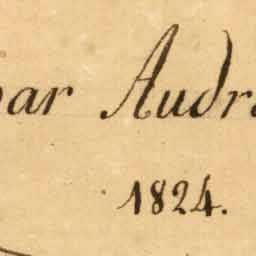 par Audr
1824.